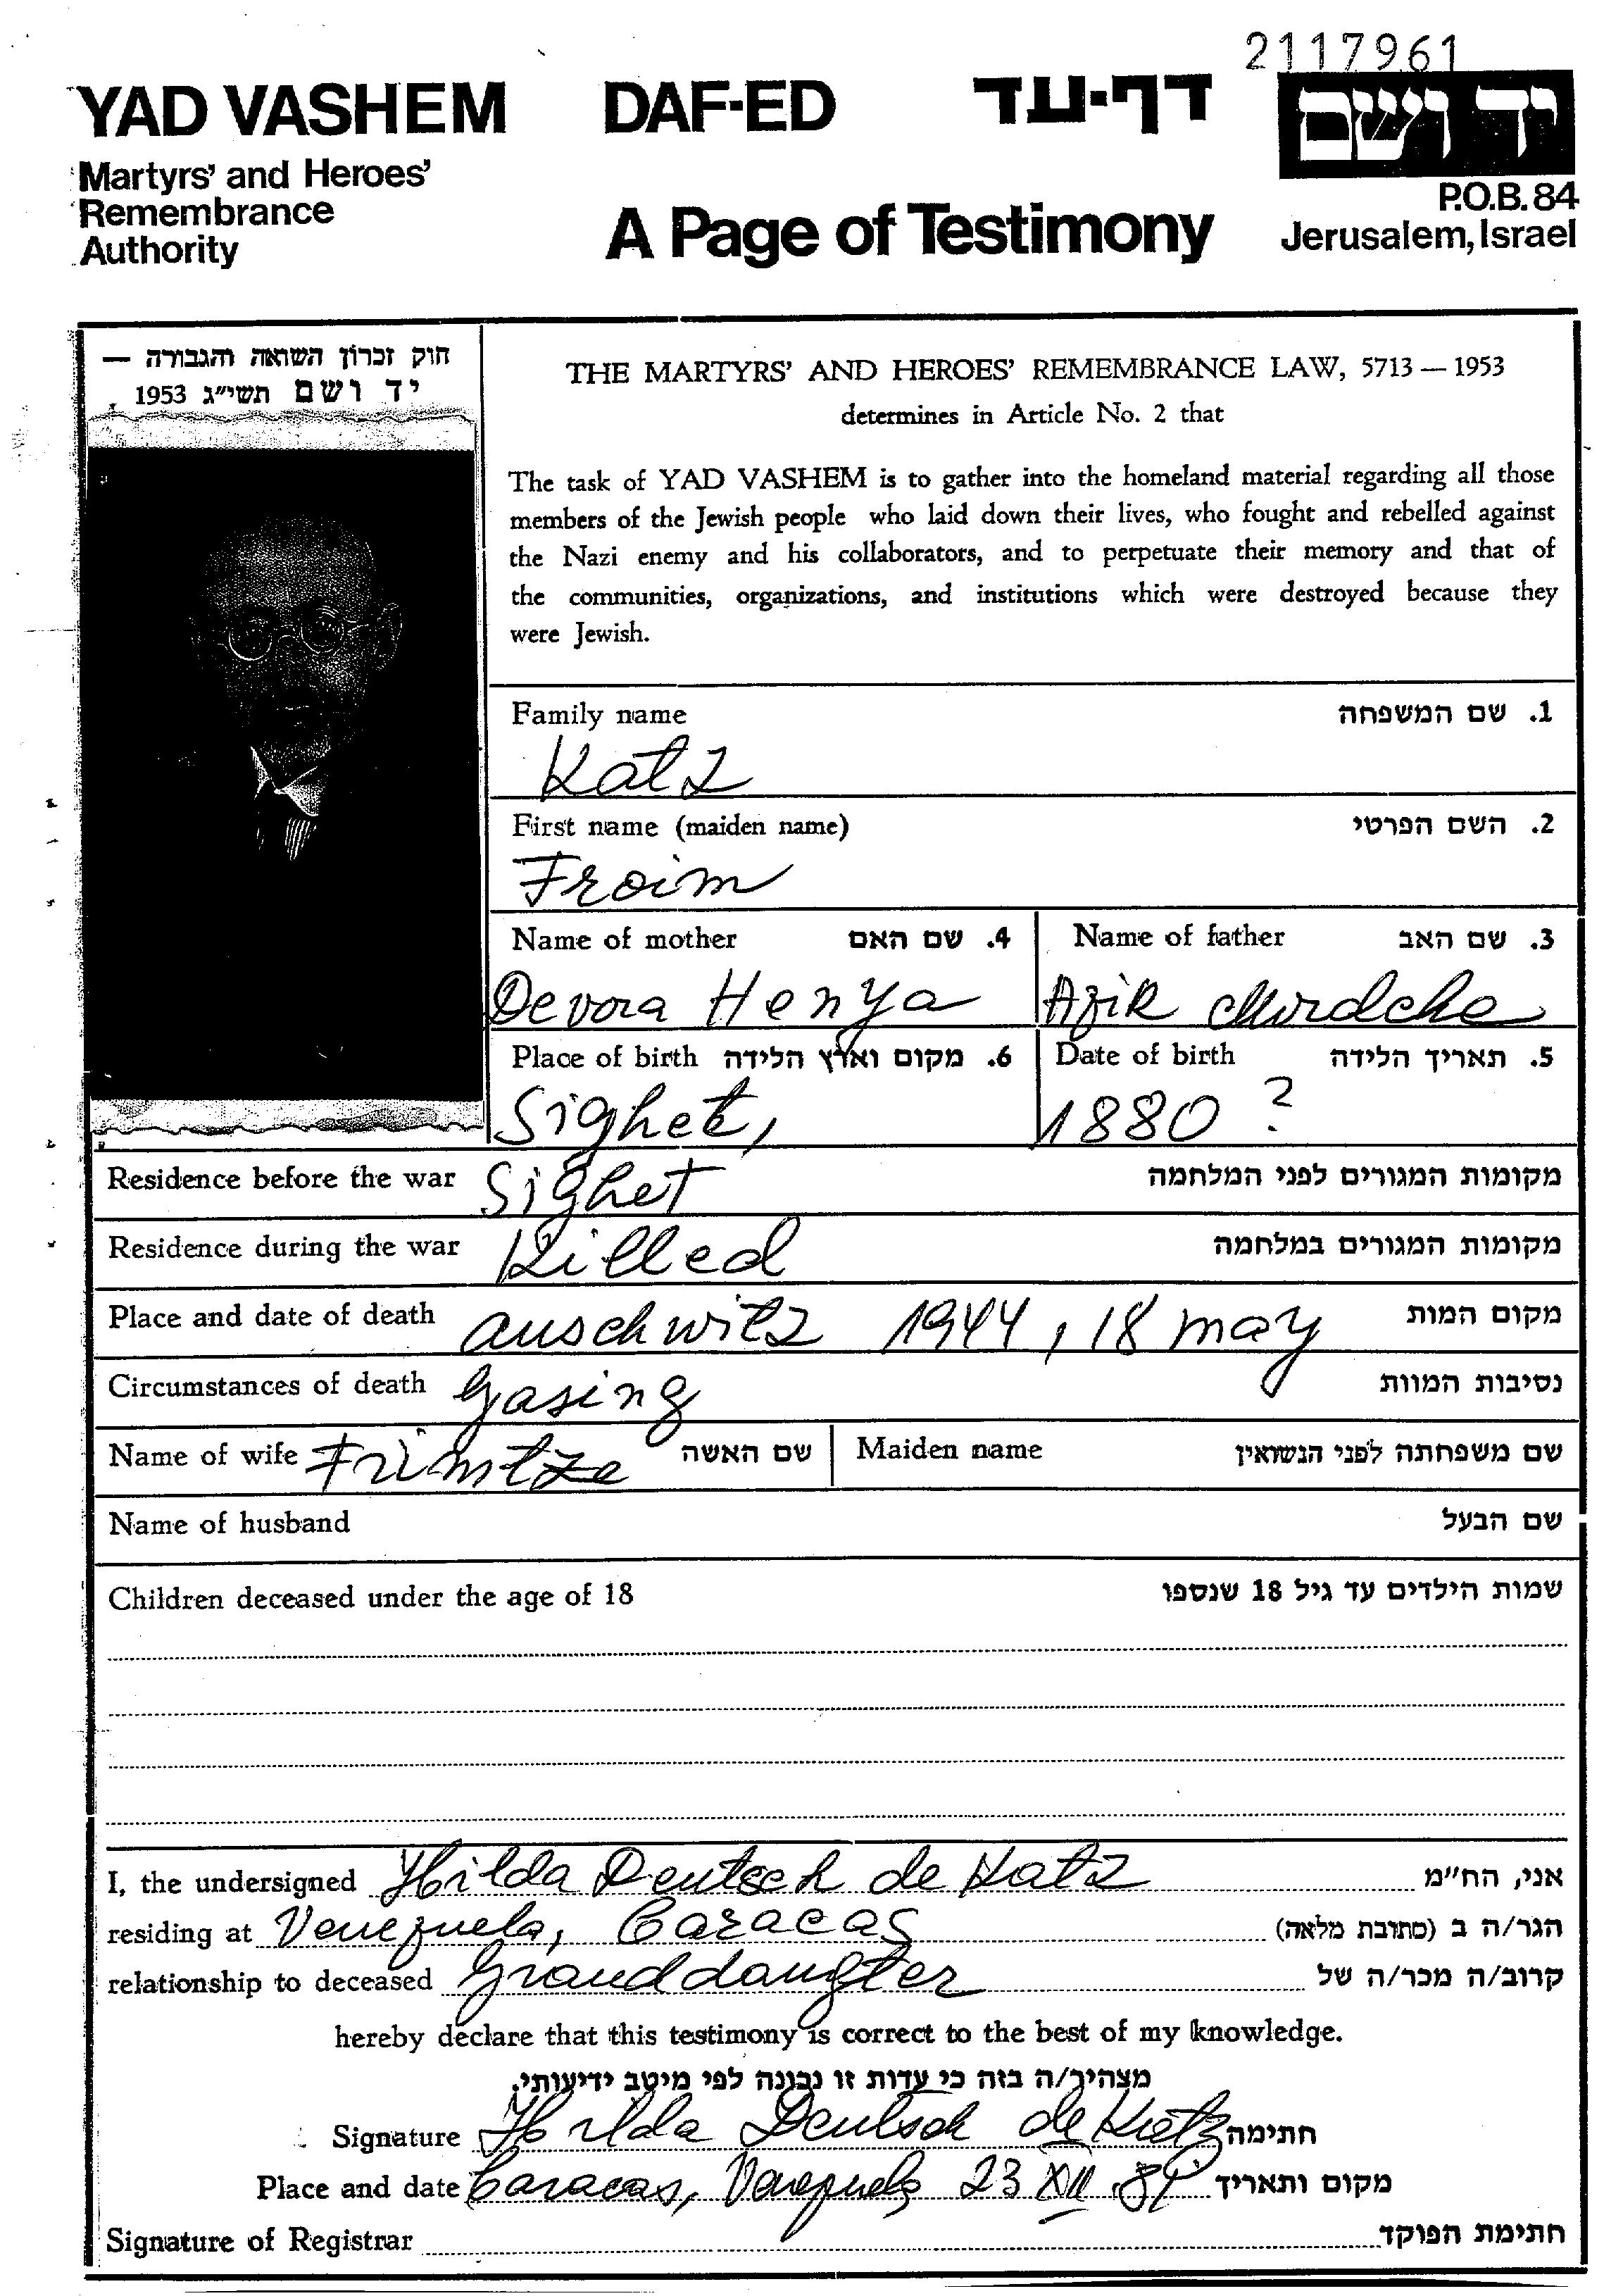 2117961
YAD VASHEM DAF-ED דף-עד יד ושם
Martyrs' and Heroes'
Remembrance
Authority
A Page of Testimony
P.O.B. 84
Jerusalem, Israel
חוק זכרון השואה והגבורה —
יד ושם תשי"ג 1953
THE MARTYRS' AND HEROES' REMEMBRANCE LAW, 5713 — 1953
determines in Article No. 2 that
The task of YAD VASHEM is to gather into the homeland material regarding all those
members of the Jewish people who laid down their lives, who fought and rebelled against
the Nazi enemy and his collaborators, and to perpetuate their memory and that of
the communities, organizations, and institutions which were destroyed because they
were Jewish.
Family name 1. שם המשפחה
Katz
First name (maiden name) 2. השם הפרטי
Froim
Name of mother 4. שם האם Name of father 3. שם האב
Devora Henya Azik Mordche
Place of birth 6. מקום וארץ הלידה Date of birth 5. תאריך הלידה
Sighet, 1880 ?
Residence before the war Sighet מקומות המגורים לפני המלחמה
Residence during the war Killed מקומות המגורים במלחמה
Place and date of death auschwitz 1944, 18 may מקום המות
Circumstances of death Gasing נסיבות המוות
Name of wife Frimtze שם האשה Maiden name שם משפחתה לפני הנשואין
Name of husband שם הבעל
Children deceased under the age of 18 שמות הילדים עד גיל 18 שנספו
I, the undersigned Hilda Deutsch de Katz אני, הח"מ
residing at Venezuela, Caracas הגר/ה ב (כתובת מלאה)
relationship to deceased Granddaugter קרוב/ה מכר/ה של
hereby declare that this testimony is correct to the best of my knowledge.
מצהיר/ה בזה כי עדות זו נכונה לפי מיטב ידיעותי.
Signature Hilda Deutsch de Katz חתימה
Place and date Caracas, Venezuela 23 XII 84 מקום ותאריך
Signature of Registrar חתימת הפוקד